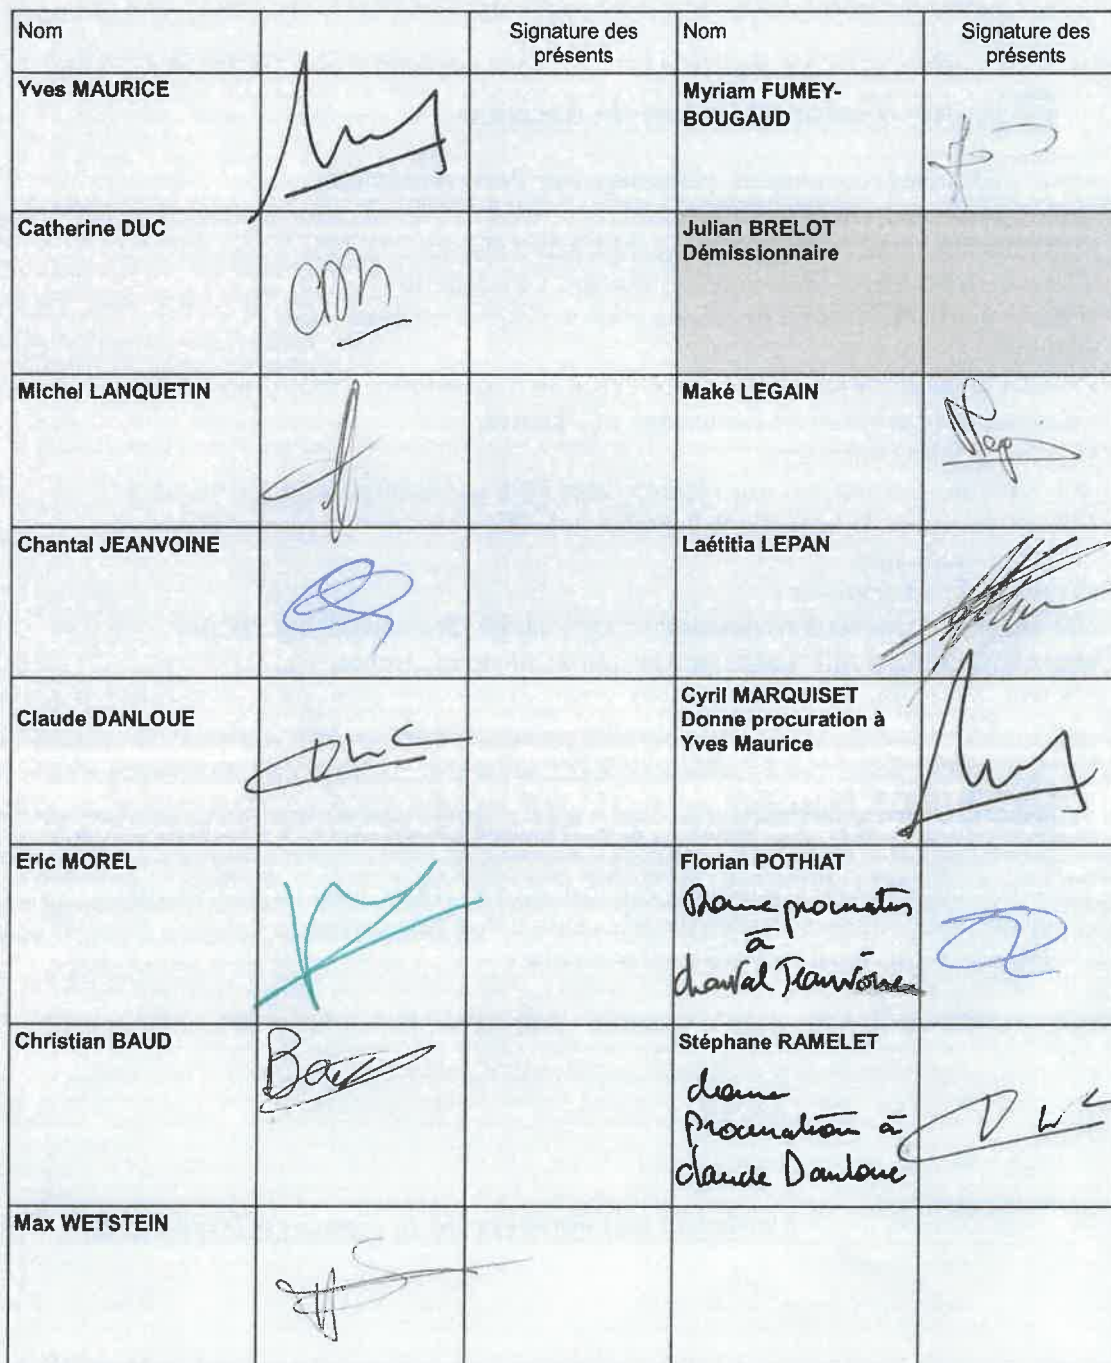 Nom
Signature des
présents
Nom
Signature des
présents
Yves MAURICE
Myriam FUMEY-
BOUGAUD
Catherine DUC
Julian BRELOT
Démissionnaire
Michel LANQUETIN
Maké LEGAIN
Chantal JEANVOINE
Laétitia LEPAN
Claude DANLOUE
Cyril MARQUISET
Donne procuration à
Yves Maurice
Eric MOREL
Florian POTHIAT
Donne procuration
à
Chantal Jeanvoine
Christian BAUD
Baud
Stéphane RAMELET
donne
procuration à
Claude Danloue
Max WETSTEIN